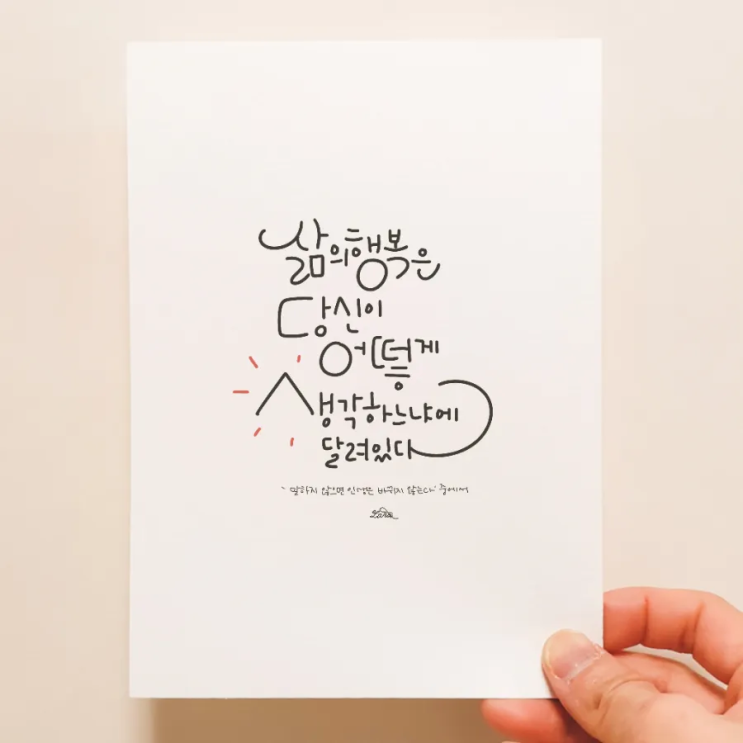 삶의 행복은
당신이
어떻게
생각하느냐에
달려있다
` 말하지 않으면 인생은 바뀌지 않는다' 중에서